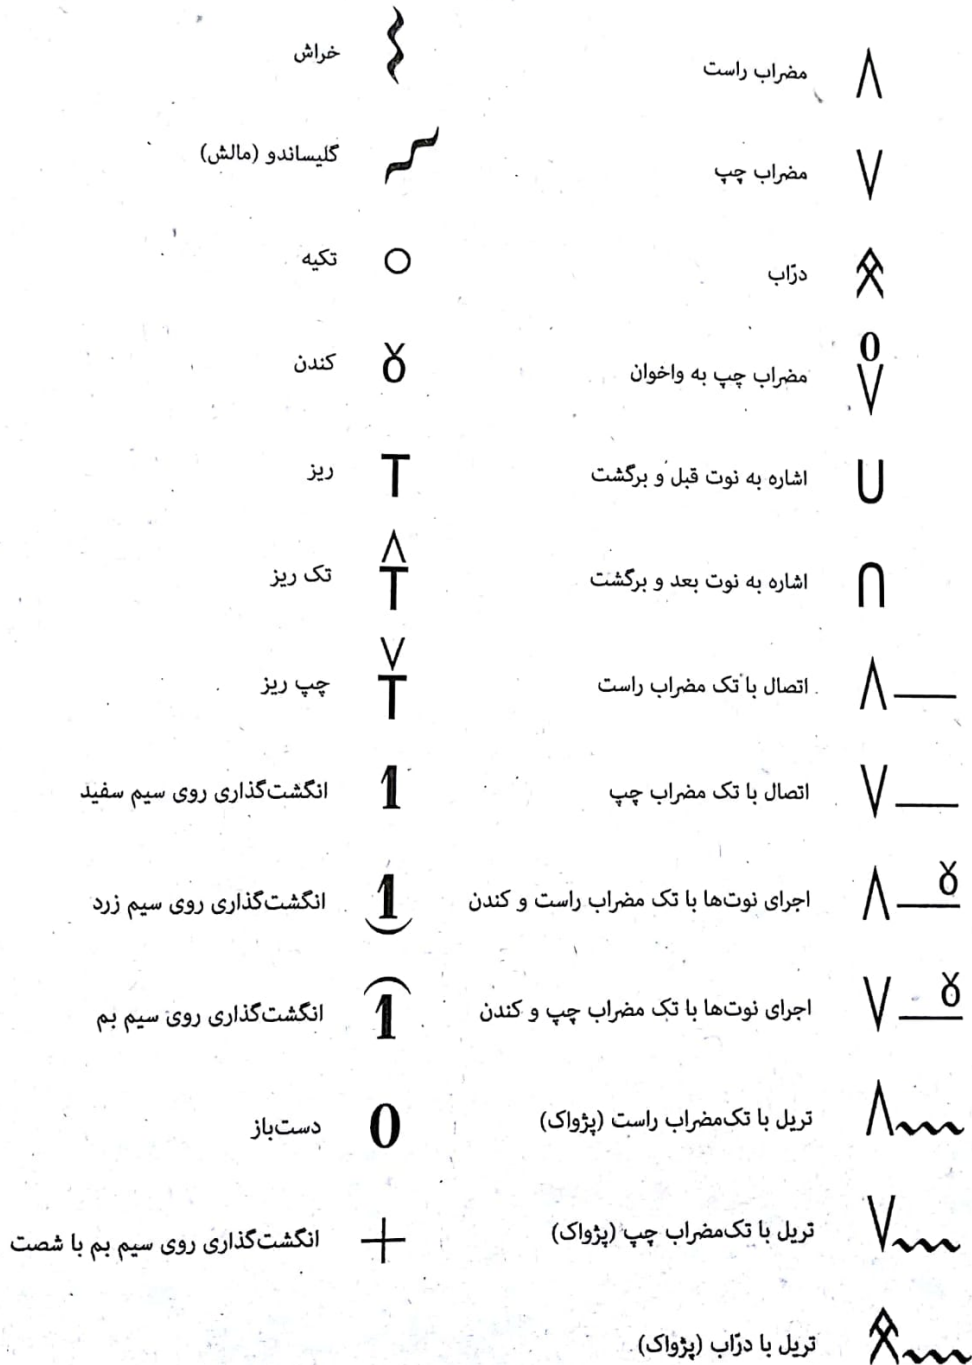 مضراب راست
مضراب چپ
درّاب
0
مضراب چپ به واخوان
اشاره به نوت قبل و برگشت
اشاره به نوت بعد و برگشت
اتصال با تک مضراب راست
اتصال با تک مضراب چپ
اجرای نوت‌ها با تک مضراب راست و کندن
اجرای نوت‌ها با تک مضراب چپ و کندن
تریل با تک‌مضراب راست (پژواک)
تریل با تک‌مضراب چپ (پژواک)
تریل با درّاب (پژواک)
خراش
گلیساندو (مالش)
تکیه
کندن
ریز
تک ریز
چپ ریز
1 انگشت‌گذاری روی سیم سفید
1 انگشت‌گذاری روی سیم زرد
1 انگشت‌گذاری روی سیم بم
0 دست‌باز
انگشت‌گذاری روی سیم بم با شصت